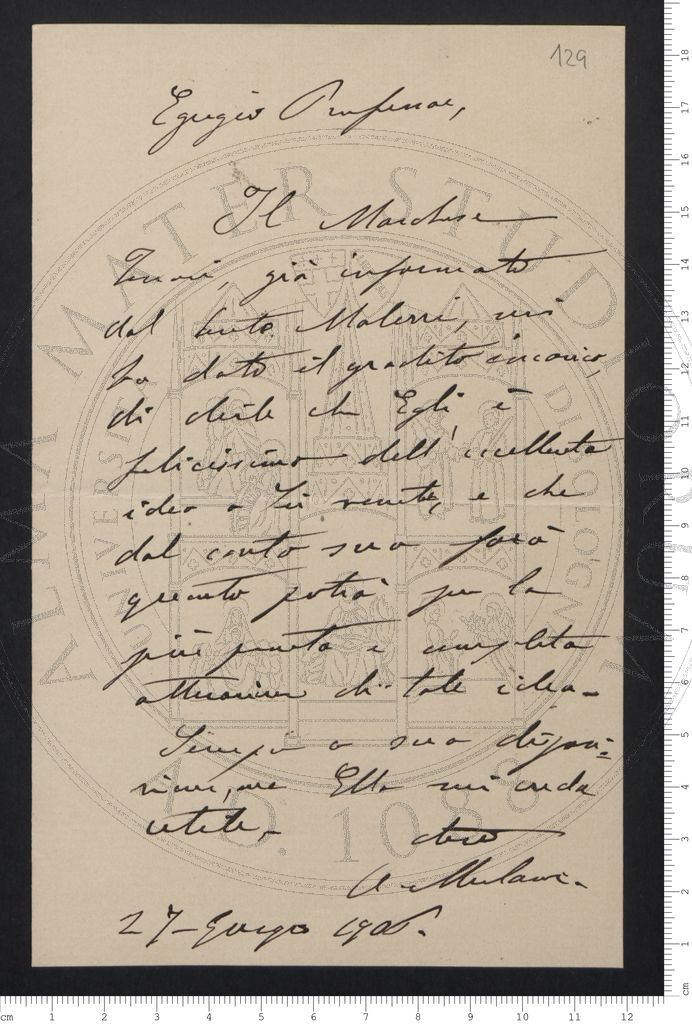 129
Egregio Professore,
Il Marchese
già informato
dal Conte Malerri, mi
ha dato il gradito incarico,
di dirle che Egli è
felicissimo dell'eccellente
idea a Lei venuta, e che
dal canto suo farà
quanto potrà per la
più pronta e completa
attuazione di tale idea.
Sempre a sua dispo=
sizione, ove Ella mi creda
utile,
27 - Giugno 1906.
ALMA MATER STUDIORUM
UNIVERSITÀ DI BOLOGNA
A.D. 1088